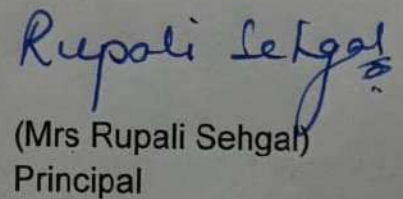 Rupali Sehgal
(Mrs Rupali Sehgal)
Principal